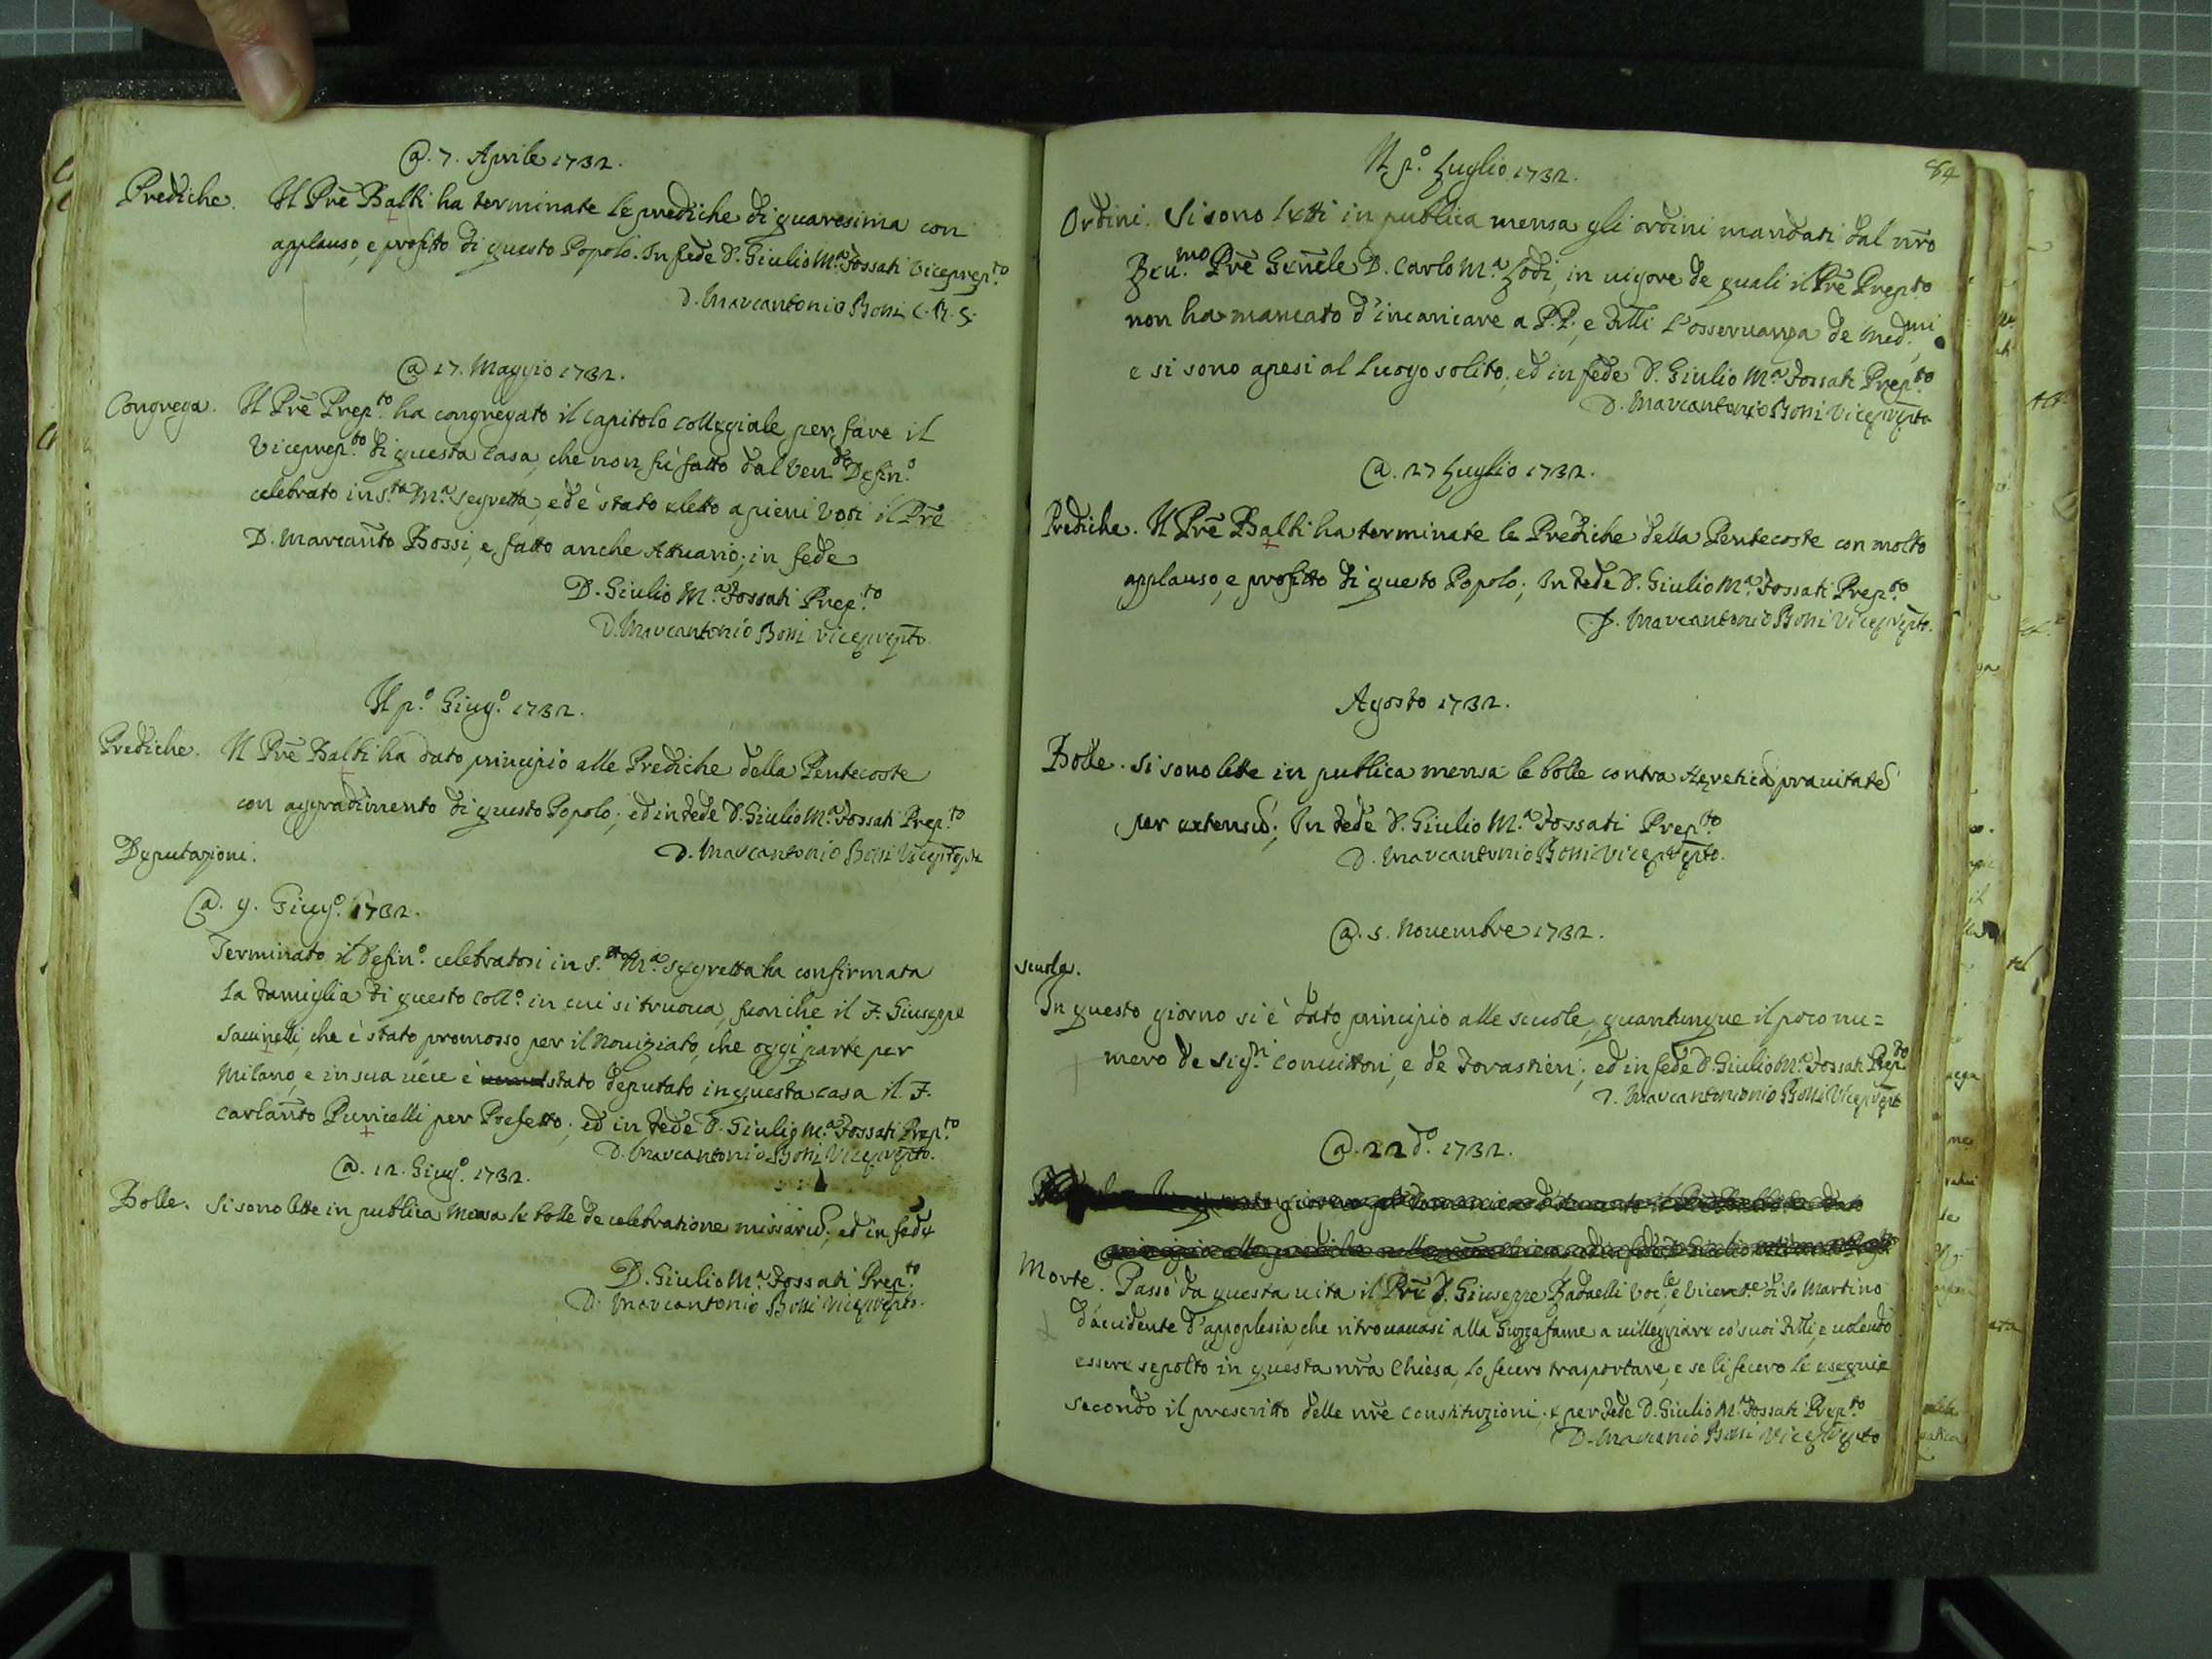 @. 7. Aprile 1732.
Prediche. Il Prē Balbi ha terminate le prediche di quaresima con
applauso, e profitto di questo Popolo. In fede D. Giulio M.ª Fossati Viceprep.to
D. Marcantonio Bossi C. R. S.
@ 17. Maggio 1732.
Congrega. Il Prē Prep.to ha congregato il Capitolo Collegiale per fare il
Viceprep.to di questa Casa, che non fù fatto dal Ven.do Defin.o
celebrato in S.ta M.ª Segretta, ed è stato eletto a pieni Voti il Prē
D. Marcant̄o Bossi, e fatto anche Attuario; in fede
D. Giulio M.ª Fossati Prep.to
D. Marcantonio Bossi Viceprep̄to.
Il p.o Giug.o 1732.
Prediche. Il Prē Balbi ha dato principio alle Prediche della Pentecoste
con aggradimento di questo Popolo; ed in fede D. Giulio M.ª Fossati Prep.to
D. Marcantonio Bossi Viceprep̄to
Deputazioni.
@. 9. Giug.o 1732.
Terminato il Defin.o celebratosi in S.ta M.ª Segretta ha confirmata
la famiglia di questo Coll.o in cui si truova, fuorche il F. Giuseppe
Savinelli, che è stato promosso per il Noviziato, che oggi parte per
Milano, e in sua vece è stato deputato in questa casa il F.
Carlant̄o Puricelli per Prefetto; ed in fede D. Giulio M.ª Fossati Prep.to
D. Marcantonio Bossi Viceprep̄to.
@. 12. Giug.o 1732.
Bolle. Si sono lette in publica Mensa le bolle de celebratione missarū; ed in fede
D. Giulio M.ª Fossati Prep.to
D. Marcantonio Bossi Viceprep̄to.
84
Il p.o Luglio 1732.
Ordini. Si sono letti in publica mensa gli ordini mandati dal nrō
Reu.mo Prē Genēle D. Carlo M.ª Lodi, in vigore de quali il Prē Prep.to
non ha mancato d'incaricare a P.P., e Flli l'osservanza de med.mi,
e si sono apesi al Luogo solito; ed in fede D. Giulio M.ª Fossati Prep.to
D. Marcantonio Bossi Viceprep̄to
@. 27 Luglio 1732.
Prediche. Il Prē Balbi ha terminate le Prediche della Pentecoste con molto
applauso, e profitto di questo Popolo; In fede D. Giulio M.ª Fossati Prep.to
D. Marcantonio Bossi Viceprep̄to.
Agosto 1732.
Bolle. Si sono lette in publica mensa le bolle contra Heretica pravitatē
per extensū; In fede D. Giulio M.ª Fossati Prep.to
D. Marcantonio Bossi Viceprep̄to.
@. 5. Novembre 1732.
Scuola.
In questo giorno si è dato principio alle scuole, quantunque il poco nu=
mero de Sig.ri Convittori, e de Forastieri; ed in fede D. Giulio M.ª Fossati Prep.to
D. Marcantonionio Bossi Viceprep̄to
@. 22 d.o 1732.
Morte. Passò da questa vita il Prē D. Giuseppe Radaelli Voc.le e Vicere.re di S. Martino
d'accidente d'appoplesia, che ritrovavasi alla Guzzafame a villeggiare co' suoi Flli, e volendo
essere sepolto in questa nrā Chiesa, lo fecero trasportare, e se li fecero le esequie
secondo il prescritto delle nrē Constituzioni; e per fede D. Giulio M.ª Fossati Prep.to
D. Marcanio Bossi Viceprep̄to